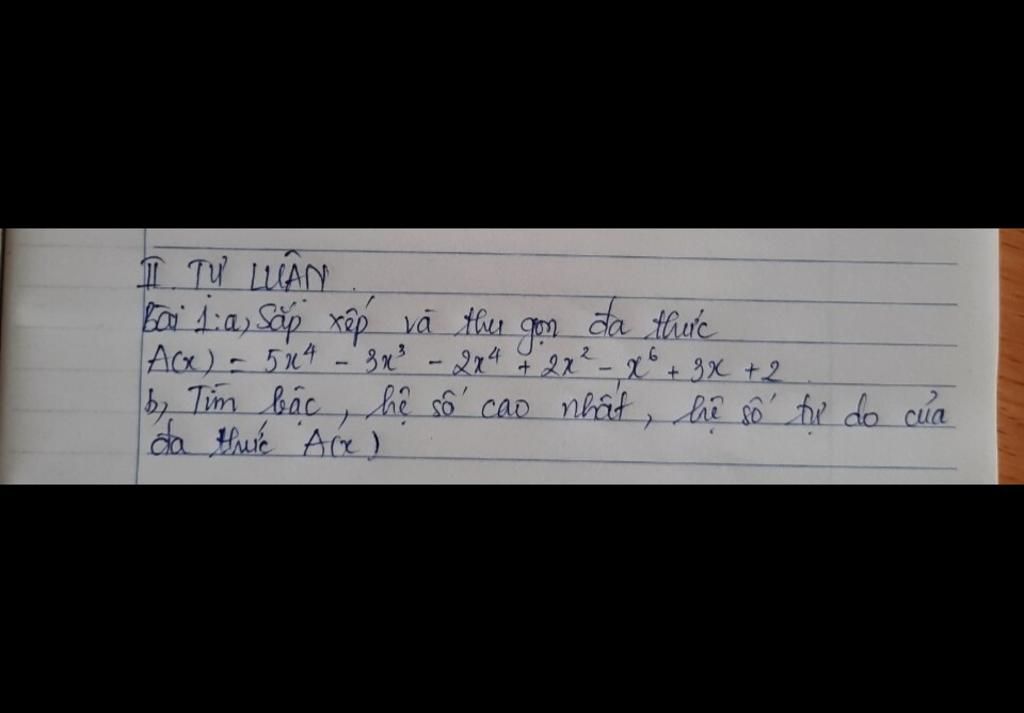 II. TỰ LUẬN.
Bài 1: a, Sắp xếp và thu gọn đa thức
A(x) = 5x⁴ - 3x³ - 2x⁴ + 2x² - x⁶ + 3x + 2
b, Tìm bậc, hệ số cao nhất, hệ số tự do của
đa thức A(x)